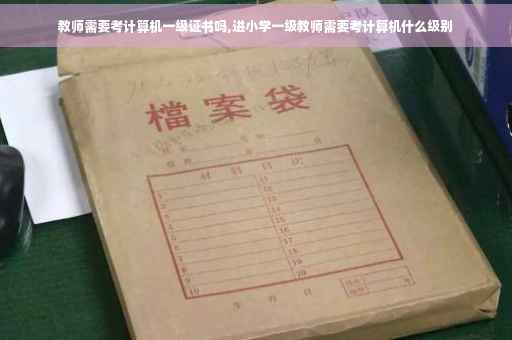 教师需要考计算机一级证书吗,进小学一级教师需要考计算机什么级别
檔案袋
材料目次
1 11
2 12
3 13
4 14
5 15
6 16
7 17
8 18
9 19
10 20
年 月 日